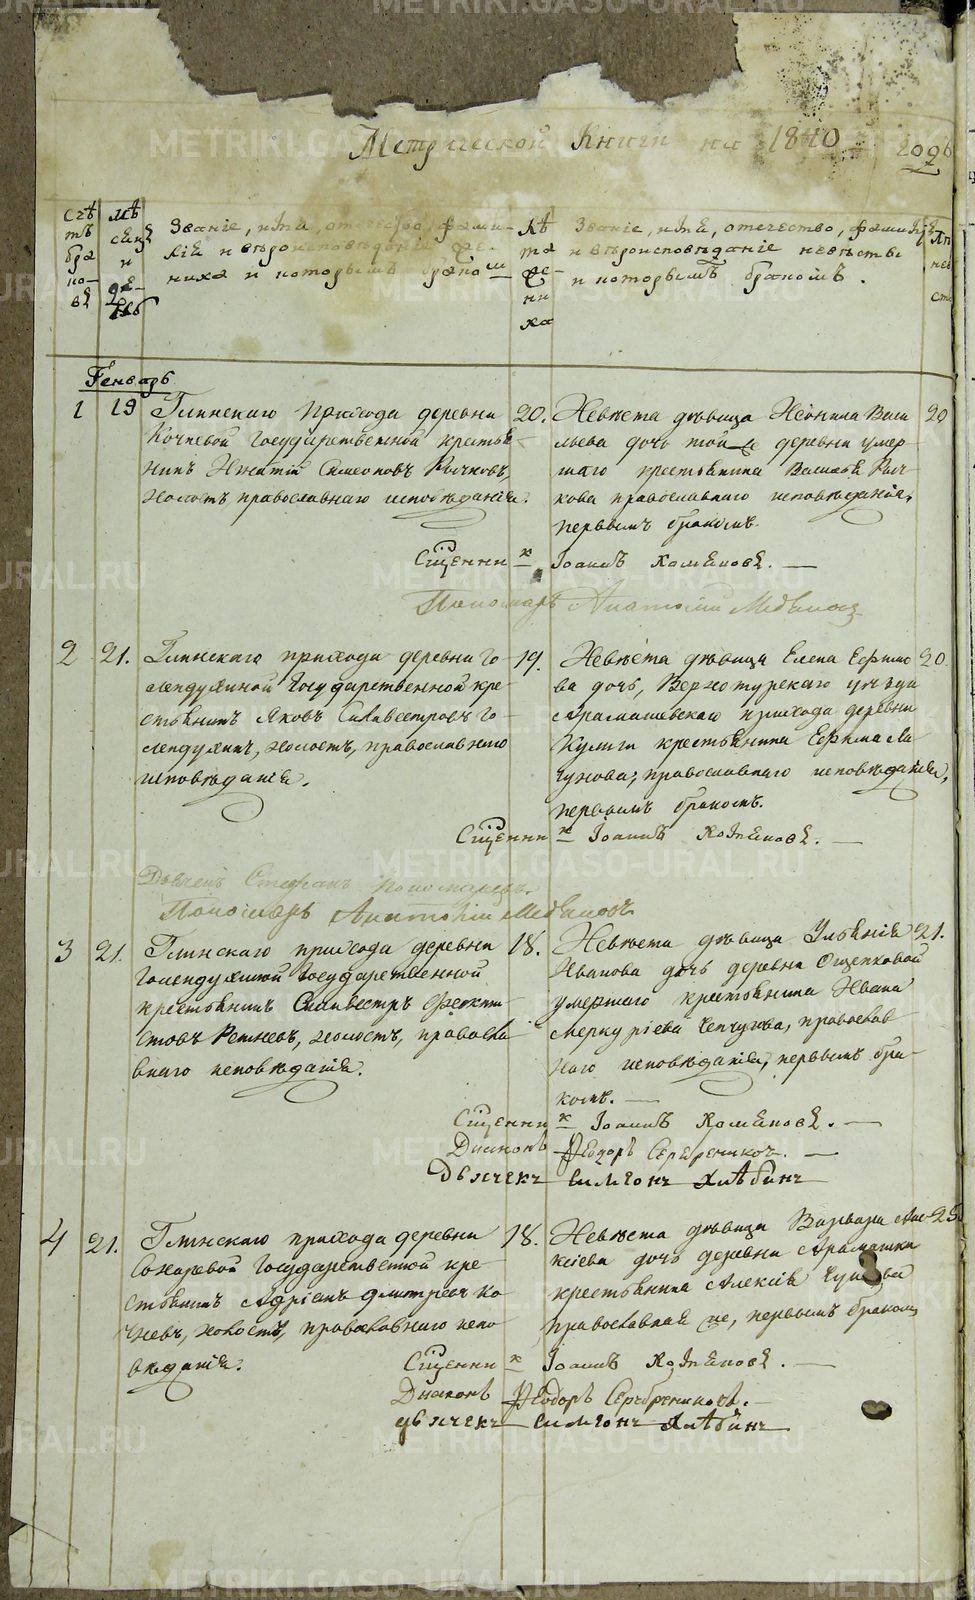 Метрической Книги на 1840
209б
Счѣтъ браковъ
Мѣсяцъ и день
Званіе, имя, отчество, фамилія и вѣроисповѣданіе жениха и которымъ бракомъ
Лѣта жениха
Званіе, имя, отчество, фамилія и вѣроисповѣданіе невѣсты и которымъ бракомъ.
Генварь
1 19 Глинскаго прихода деревни
Кочневой Государственной крестья
нинъ Симеоновъ
холостъ, православнаго исповѣданія.
20. Невѣста дѣвица Неонила Васи
льева дочь той же деревни умер
шаго крестьянина Василья
кова православнаго исповѣданія,
первымъ бракомъ
Сщенникъ Іоаннъ Хомяковъ.
Пономарь Анатолій
20
2 21. Глинскаго прихода деревни Го
лендухиной Государственной кре
стьянинъ Яковъ Силивестровъ Го
лендухинъ, холостъ, православнаго
исповѣданія.
19. Невѣста дѣвица Елена Ефимо
ва дочь, Верхотурскаго уѣзда
Арамашевскаго прихода деревни
Кулиги крестьянина Ефима Ла
православнаго исповѣданія,
первымъ бракомъ.
20.
Сщенникъ Іоаннъ Хомяковъ.
Дьячекъ Стефанъ Пономаревъ.
Пономарь Анатолій
3 21. Глинскаго прихода деревни
Голендухиной Государственной
крестьянинъ Силивестръ Феокти
стовъ холостъ, правосла
внаго исповѣданія.
18. Невѣста дѣвица Ульянія
Иванова дочь деревни Ощепковой
умершаго крестьянина Ивана
Меркуріева Чепчугова, православ
наго исповѣданія, первымъ бра
комъ.
21.
Сщенникъ Іоаннъ Хомяковъ.
Диаконъ Ѳеодоръ Серебренниковъ.
Дьячекъ Симеонъ Хлѣбинъ
4 21. Глинскаго прихода деревни
Государственной кре
стьянинъ Адріанъ Дмитріевъ Ко
чневъ, холостъ, православнаго испо
вѣданія.
18. Невѣста дѣвица Варвара Але
ксіева дочь деревни Арамашки
крестьянина Алексія
православная же, первымъ бракомъ
25.
Сщенникъ Іоаннъ Хомяковъ.
Диаконъ Ѳеодоръ Серебренниковъ.
Дьячекъ Симеонъ Хлѣбинъ
METRIKI.GASO-URAL.RU